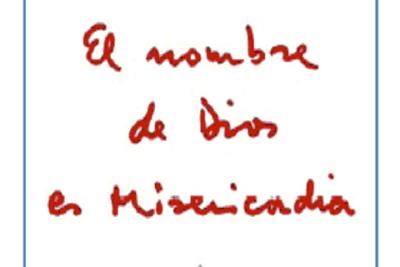 El nombre
de Dios
es Misericordia